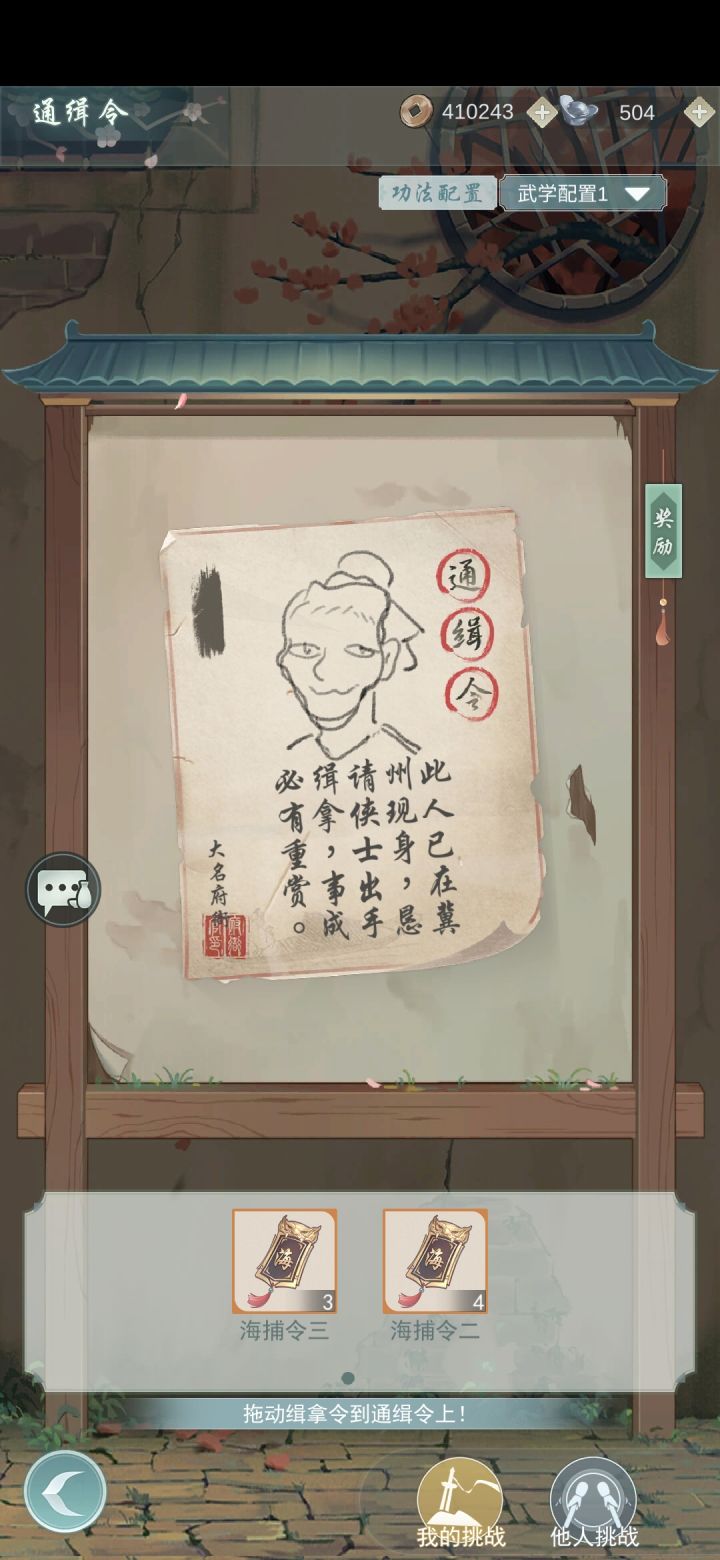 通缉令
410243
504
功法配置
武学配置1
奖励
通缉令
此人已在冀
州现身，恳
请侠士出手
缉拿，事成
必有重赏。
大名府衙
3
4
海捕令三
海捕令二
拖动缉拿令到通缉令上！
我的挑战
他人挑战